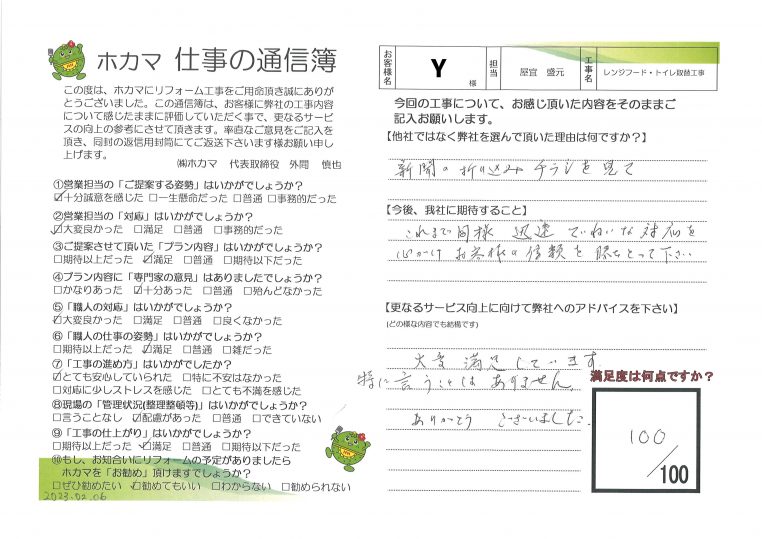 ホカマ 仕事の通信簿
この度は、ホカマにリフォーム工事をご用命頂き誠にありが
とうございました。この通信簿は、お客様に弊社の工事内容
について感じたままに評価していただく事で、更なるサービ
スの向上の参考にさせて頂きます。率直なご意見をご記入を
頂き、同封の返信用封筒にてご返送下さいます様お願い申し
上げます。
㈱ホカマ 代表取締役 外間 慎也
①営業担当の「ご提案する姿勢」はいかがでしょうか?
☑十分誠意を感じた □一生懸命だった □普通 □事務的だった
②営業担当の「対応」はいかがでしょうか?
☑大変良かった □満足 □普通 □事務的だった
③ご提案させて頂いた「プラン内容」はいかがでしょうか?
□期待以上だった ☑満足 □普通 □期待以下だった
④プラン内容に「専門家の意見」はありましたでしょうか?
□かなりあった ☑十分あった □普通 □殆んどなかった
⑤「職人の対応」はいかがでしょうか?
☑大変良かった □満足 □普通 □良くなかった
⑥「職人の仕事の姿勢」はいかがでしょうか?
□期待以上だった ☑満足 □普通 □雑だった
⑦「工事の進め方」はいかがでしたか?
☑とても安心していられた □特に不安はなかった
□対応に少しストレスを感じた □とても不満を感じた
⑧現場の「管理状況(整理整頓等)」はいかがでしょうか?
□言うことなし ☑配慮があった □普通 □できていない
⑨「工事の仕上がり」はいかがでしょうか?
□期待以上だった ☑満足 □普通 □期待以下だった
⑩もし、お知合いにリフォームの予定がありましたら
ホカマを「お勧め」頂けますでしょうか?
□ぜひ勧めたい ☑勧めてもいい □わからない □勧められない
2023.02.06
お客様名 Y 様 担当 屋宜 盛元 工事名 レンジフード・トイレ取替工事
今回の工事について、お感じ頂いた内容をそのままご
記入お願いします。
【他社ではなく弊社を選んで頂いた理由は何ですか?】
新聞の折り込みチラシを見て
【今後、我社に期待すること】
これまで同様 迅速 ていねいな対応を
心がけ お客様の信頼を勝ちとって下さい
【更なるサービス向上に向けて弊社へのアドバイスを下さい】
(どの様な内容でも結構です)
大変満足しています
特に言うことはありません。
ありがとう ございました。
満足度は何点ですか?
100
/100